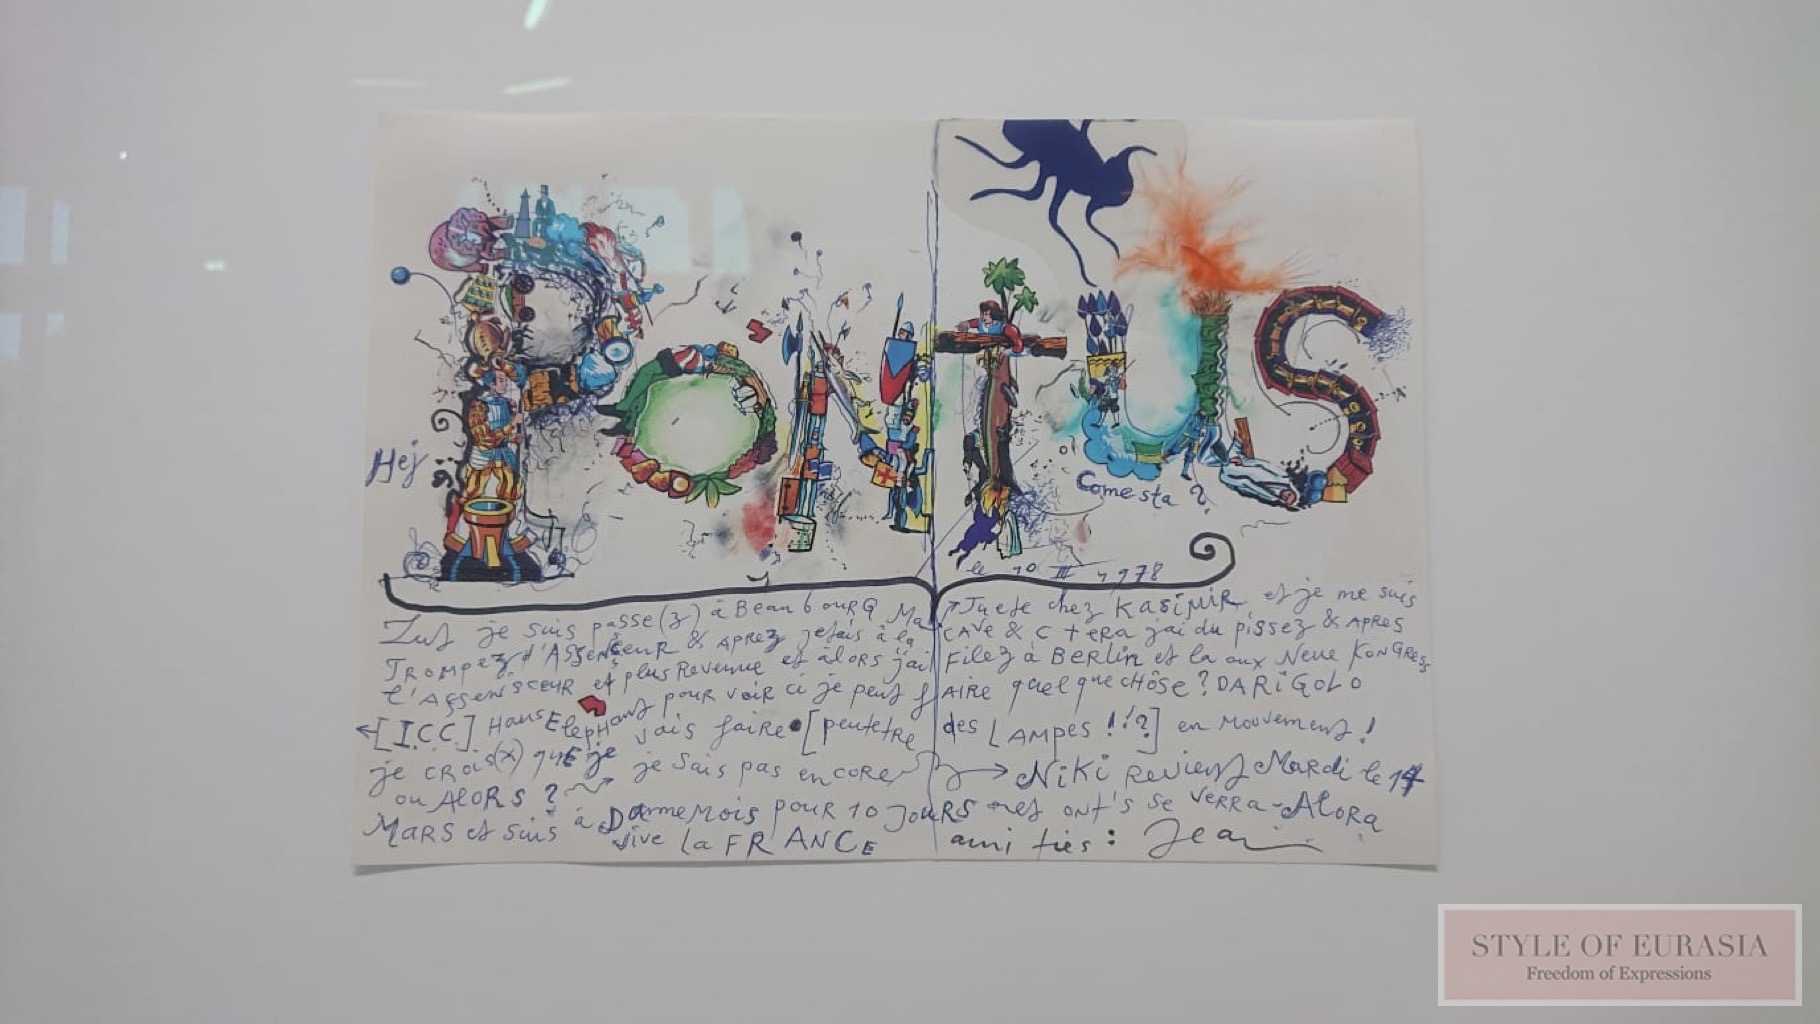 Hej
PONTUS
Come sta ?
le 10 III 1978
Zut je suis passe(z) à BeaubourG Ma
TROMPEZ d'ASSENCEUR & APREZ jetais à la
L'ASSENSCEUR et plus Revenue et alors j'ai
←[I.C.C.] Hans Elephant pour voir ci je peut f
je CROIS(x) que je vais faire [peutetre
ou AlORS ? je sais pas encore
MARS et suis à Darmemois pour 10 JOURS
vive la FRANCE
→ chez KASiMiR et je me suis
CAVE & C t ERA j'ai du pissez & APRES
FiLez à BERLiN et la aux Neue KONGRess
AIRE quelque chôse ? DARiGOLO
des LAMPES !!?] en Mouvement !
→ NiKi Revient Mardi le 14
se VERRA - Alora
amitiés : Jean
STYLE OF EURASIA
Freedom of Expressions